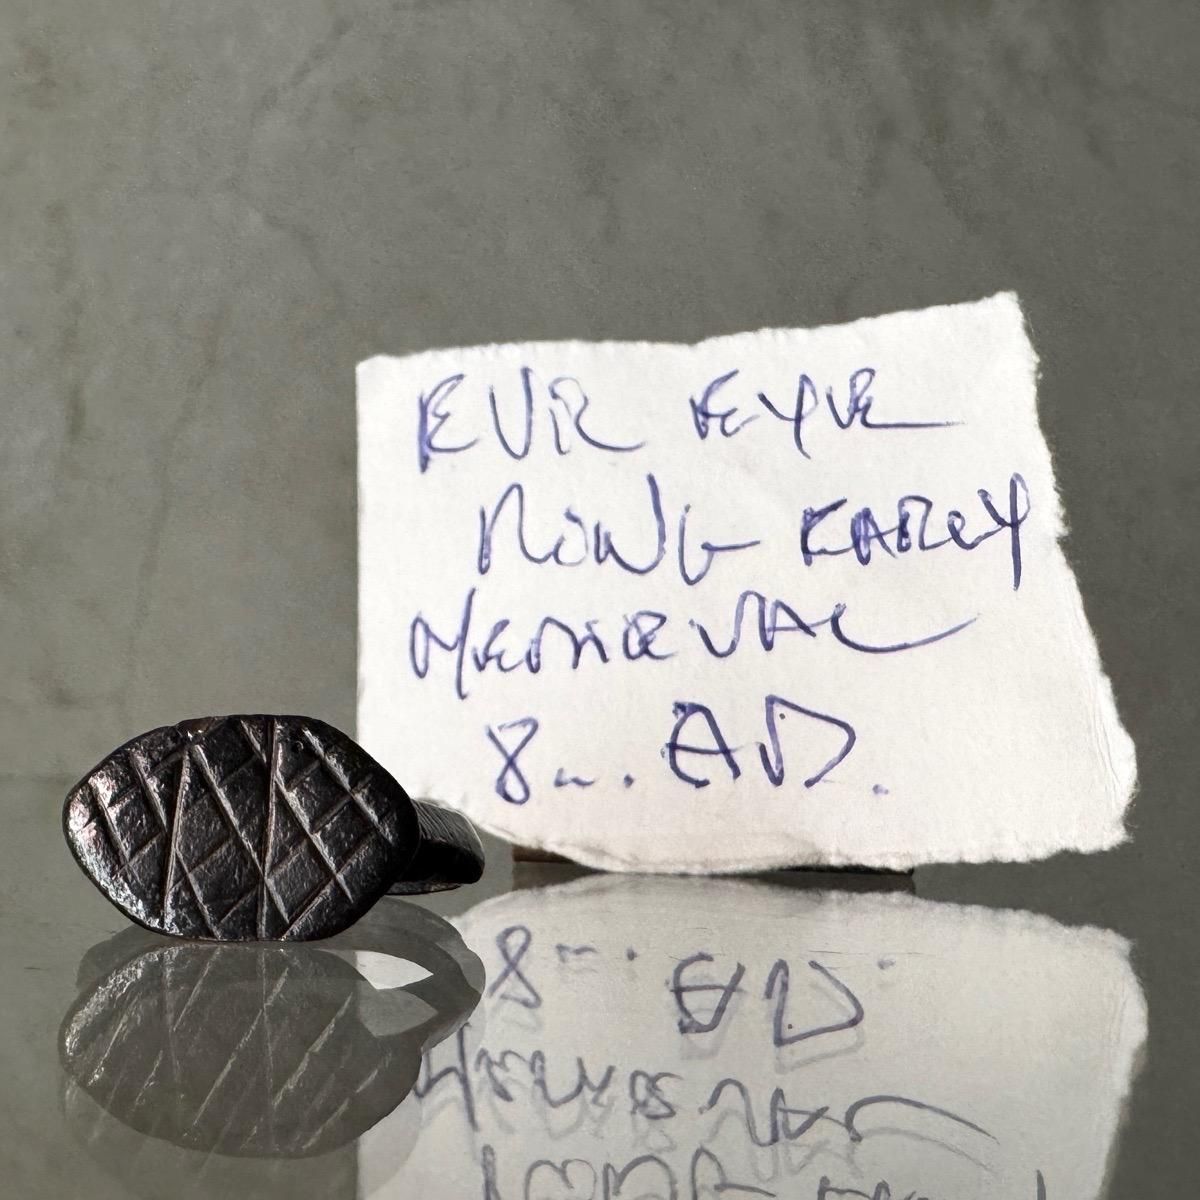 EVR EYVE
RONG EARLY
MEDIEVAL
8... AD.